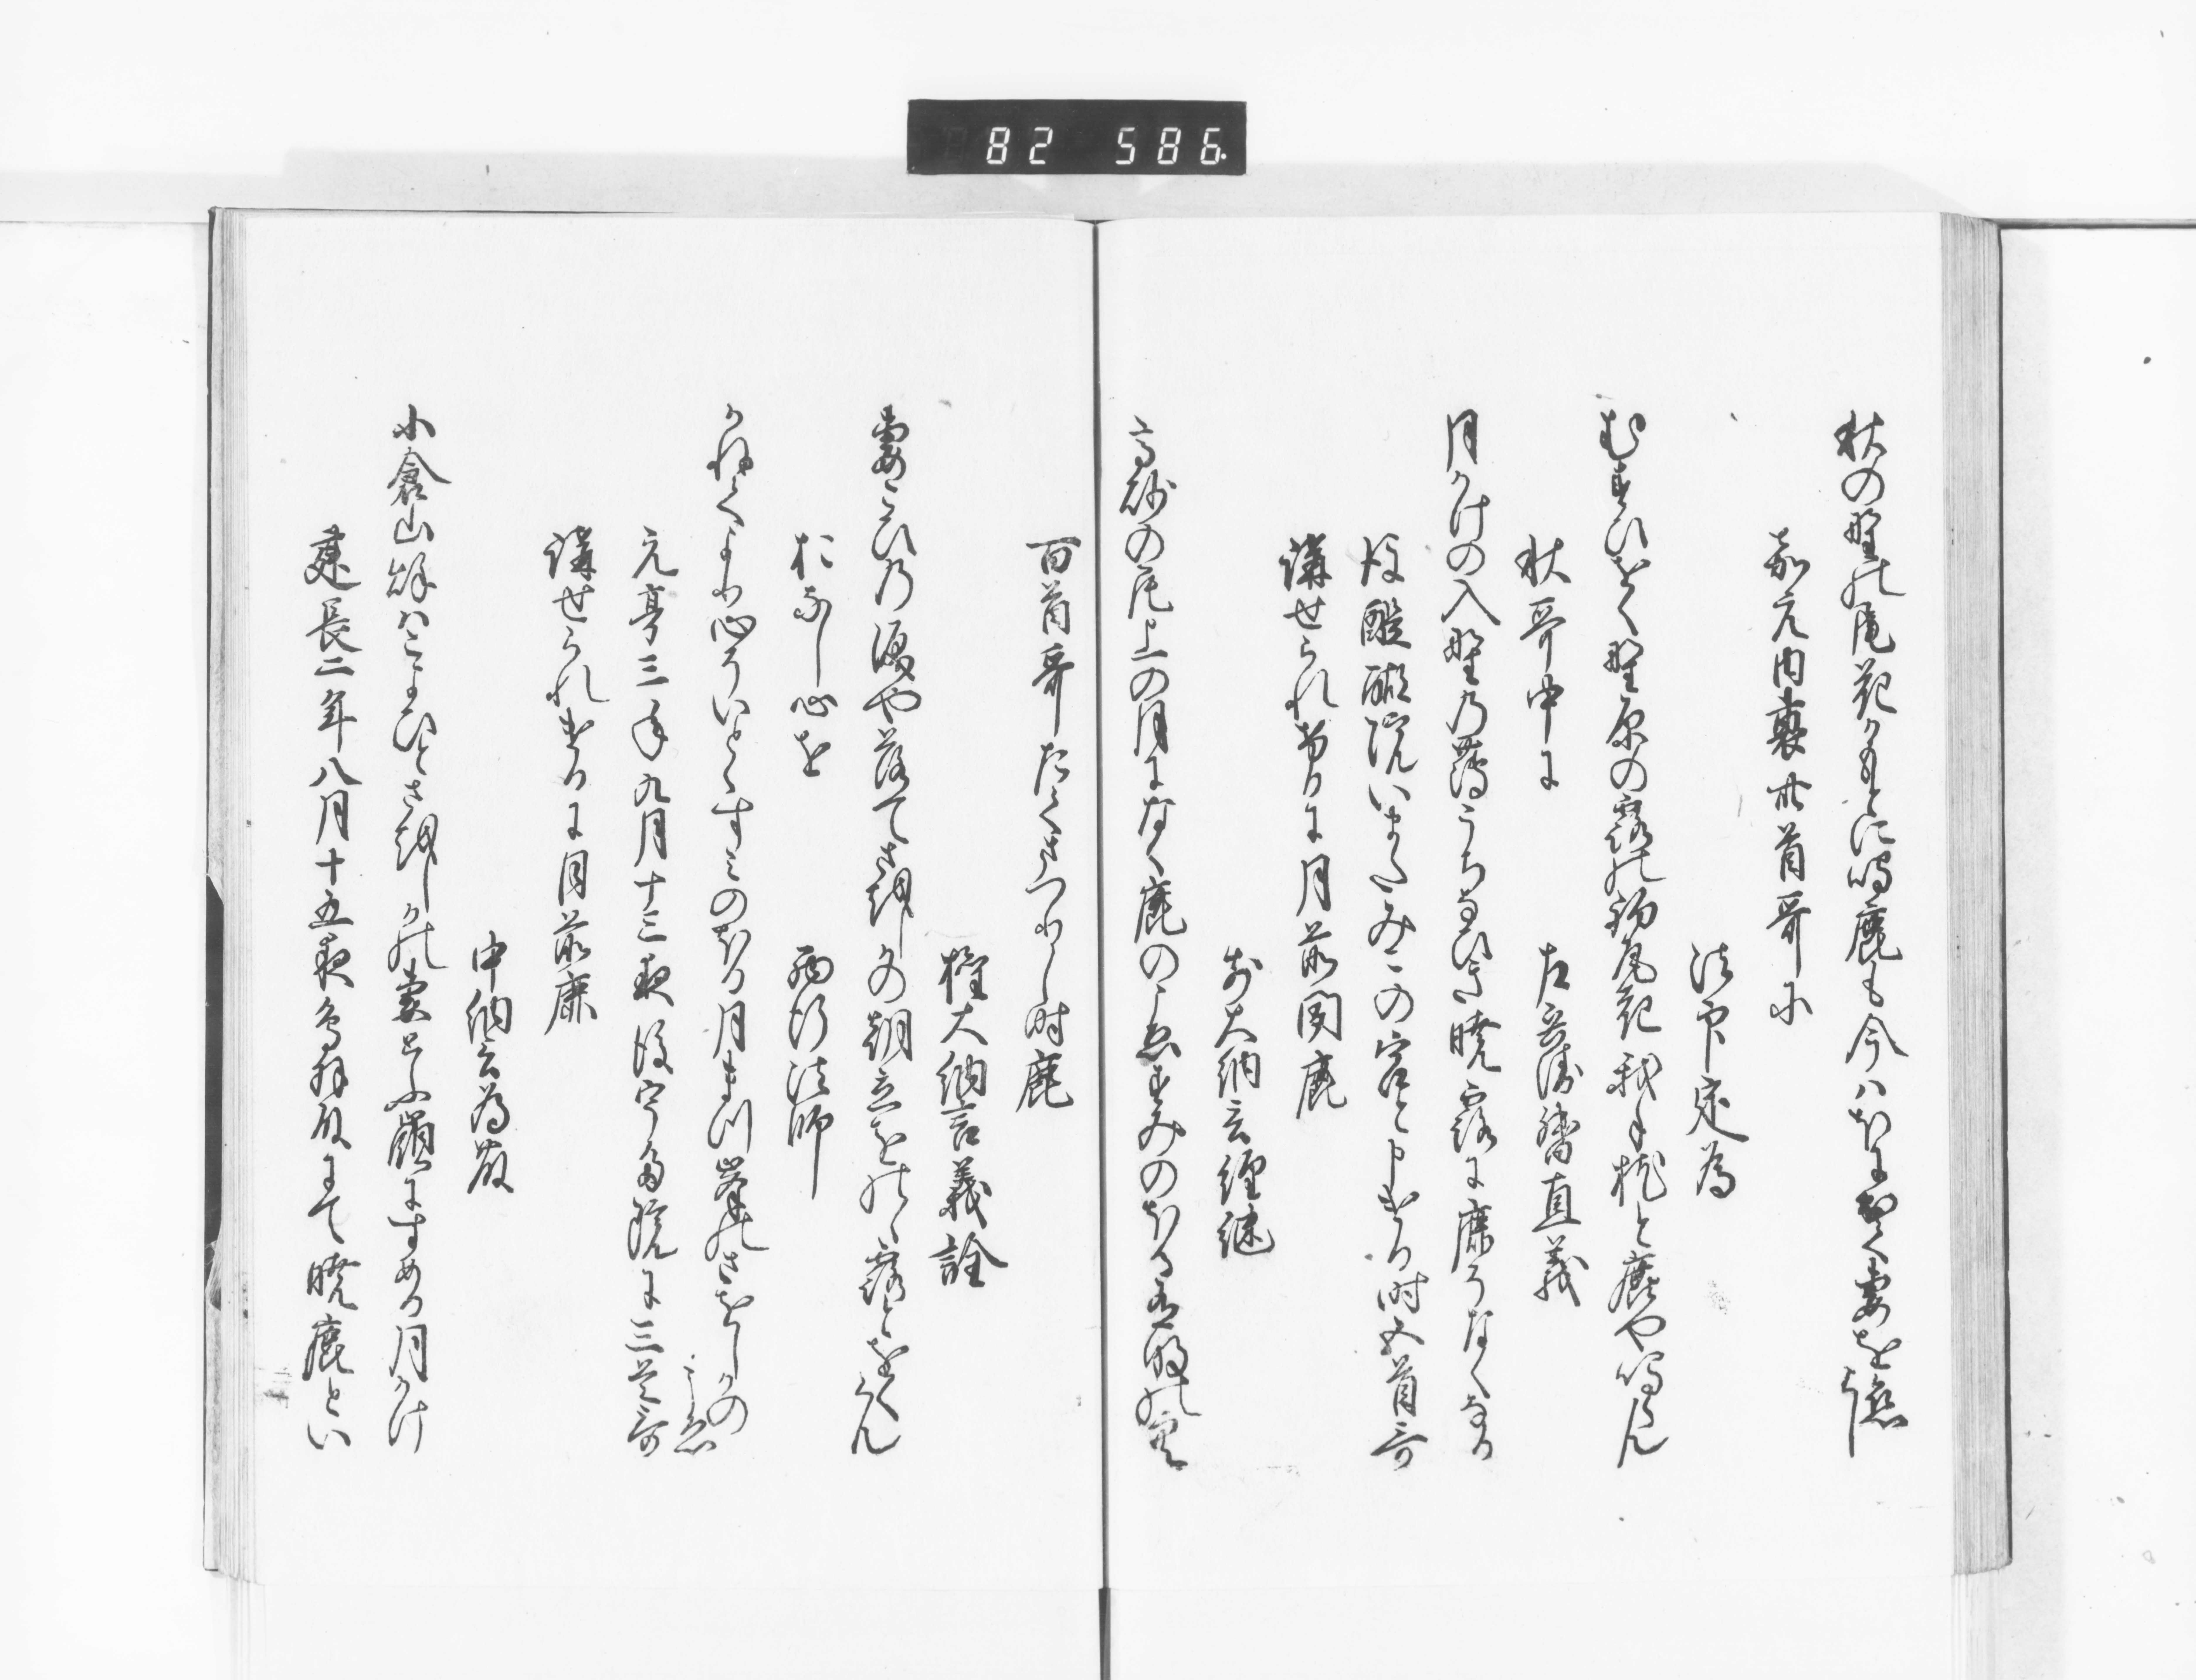 82 586
秋の野の尾花かもとに鳴鹿も今はほに出て妻を恋らし
嘉元内裏卅首哥に
法印定為
むすひをく野原の露の初尾花我手枕と鹿や鳴らん
秋哥中に
左兵衛督直義
月かけの入野の薄うちなひき暁露に鹿そなくなる
後醍醐院いまたみこの宮と申ける時五首哥
講せられけるに月前聞鹿
前大納言経継
高砂の尾上の月になく鹿のこゑすみのほる有明の空
百首哥たてまつりし時鹿
権大納言義詮
妻こひの涙や落てさをしかの朝立をのゝ露とをくらん
おなし心を
西行法師
かねてより心そいとゝすみのほる月まつ峯のさをしかの
こゑ
元亨三年九月十三夜後宇多院に三首哥
講せられけるに月前鹿
中納言為藤
小倉山秋はこよひとさをしかの妻とふ嶺にすめる月かけ
建長二年八月十五夜鳥羽殿にて暁鹿とい